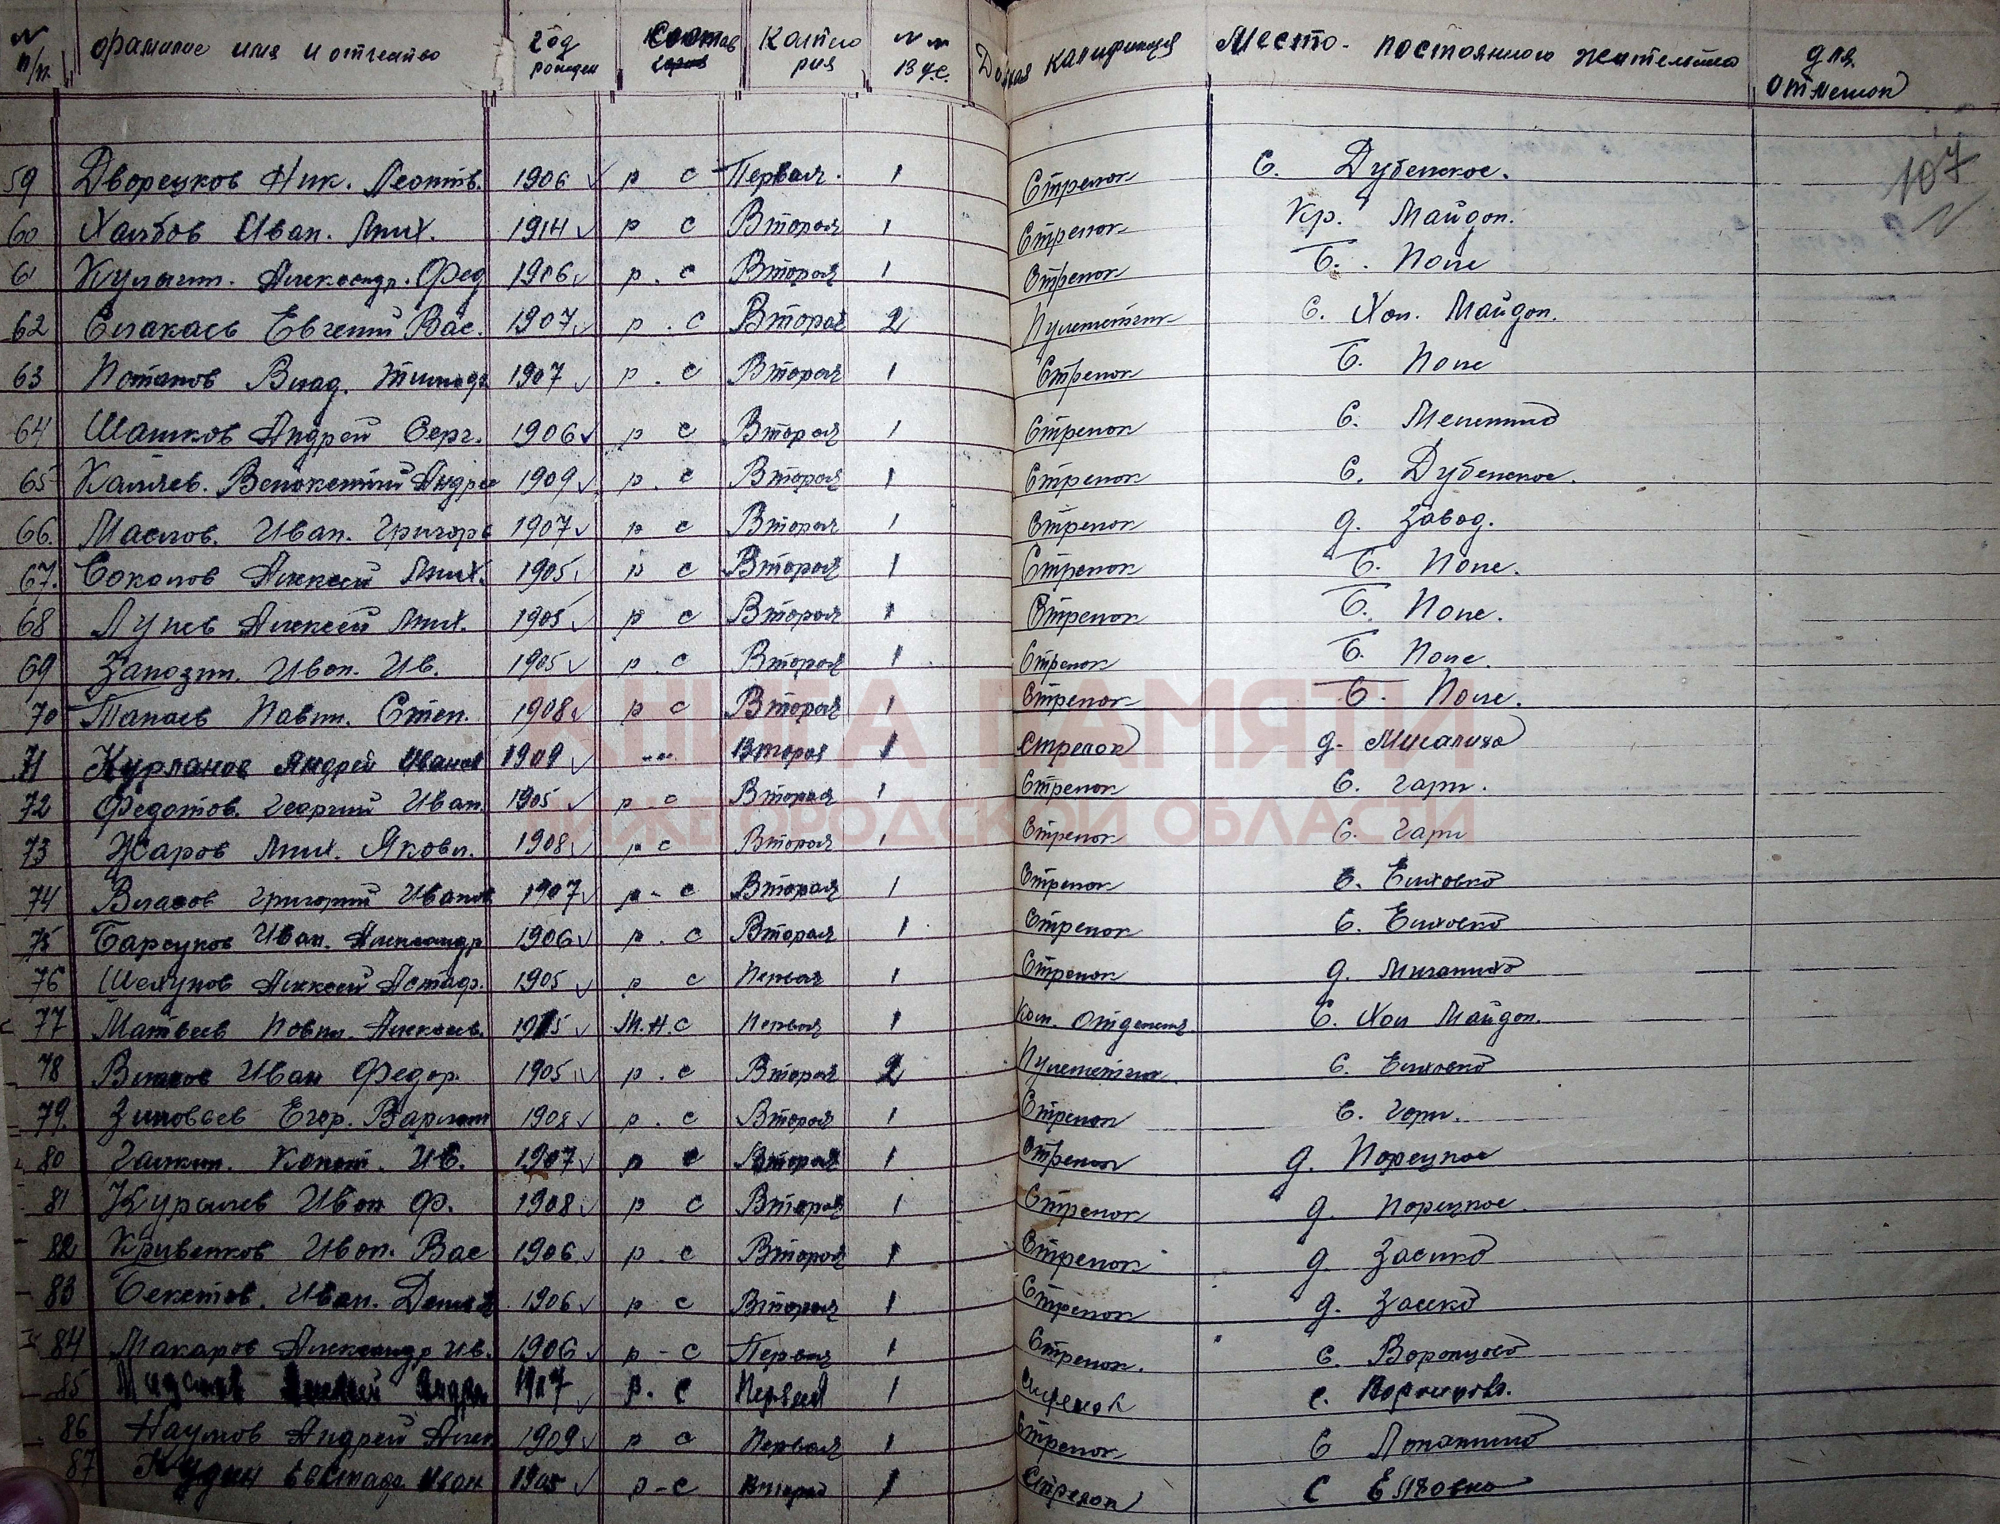 N п/п. фамилие имя и отчество год рождения Состав Катего рия N N ВУС. квалификация Место постоянного жительства для отметок
107
59 Дворецков Ник. Леонтв. 1906 р с Первая. 1 Стрелок С. Дубенское.
60 Иван. Мих. 1914 р с Вторая 1 Стрелок Кр. Майдан.
61 Кулагин. Александр. Фед 1906 р. с Вторая 1 Стрелок Б. Поле
62 Евгений Вас. 1907 р. с Вторая 2 Пулеметчик С. Хол. Майдан.
63 Потапов Влад. 1907 р. с Вторая 1 Стрелок Б. Поле
64 Шашков Андрей Серг. 1906 р с Вторая 1 Стрелок С.
65 Андрее 1909 р. с Вторая 1 Стрелок С. Дубенское.
66. Маслов. Иван. Григорь 1907 р с Вторая 1 Стрелок д. Завод.
67. Соколов Алексей Мих. 1905 р с Вторая 1 Стрелок Б. Поле.
68 Лунев Алексей Мих. 1905 р с Вторая 1 Стрелок Б. Поле.
69 Иван. Ив. 1905 р. с Вторая 1 Стрелок Б. Поле.
70 Танаев Павл. Степ. 1908 р с Вторая 1 Стрелок Б. Поле.
71 Курланов Андрей Иванов 1909 -"- Вторая 1 Стрелок д.
КНИГА ПАМЯТИ
72 Федотов. Георгий Иван. 1905 р - с Вторая 1 Стрелок С. Гари.
НИЖЕГОРОДСКОЙ ОБЛАСТИ
73 Жаров Мих. Яковл. 1908 р с Вторая 1 Стрелок С. Гари
74 Власов Григорий Иванов 1907 р - с Вторая 1 Стрелок С. Елховко
75 Барсуков Иван. Александр 1906 р. с Вторая 1 Стрелок С. Елховко
76 Шелунов Алексей Астаф. 1905 р с Первая 1 Стрелок д.
77 Матвеев Павл. Алексеев. М.Н.С Первая 1 Ком. Отделения С. Хол Майдан.
78 Иван Федор. 1905 р. с Вторая 2 Пулеметчик С. Елховко
79. Зиновьев Егор. Варлам 1908 р. с Вторая 1 Стрелок С. Гари.
80 Галкин. Ив. 1907 р с Вторая 1 Стрелок д. Порецкое
81 Иван Ф. 1908 р с Вторая 1 Стрелок д. Порецкое.
82 Кривенков Иван. Вас 1906 р - с Вторая 1 Стрелок д. Засеко
83 Бекетов. Иван. 1906 р с Вторая 1 Стрелок д. Засеко
84 Макаров Александр Ив. 1906 р - с Первая 1 Стрелок. С. Воронцово
85 Алексей Андре 1907 р. с Первая 1 Стрелок С.
86 Наумов Андрей Алек 1909 р с Первая 1 Стрелок С Лопатино
87 Кудин Евстаф. Иван 1905 р - с Вторая 1 Стрелок С Елховко